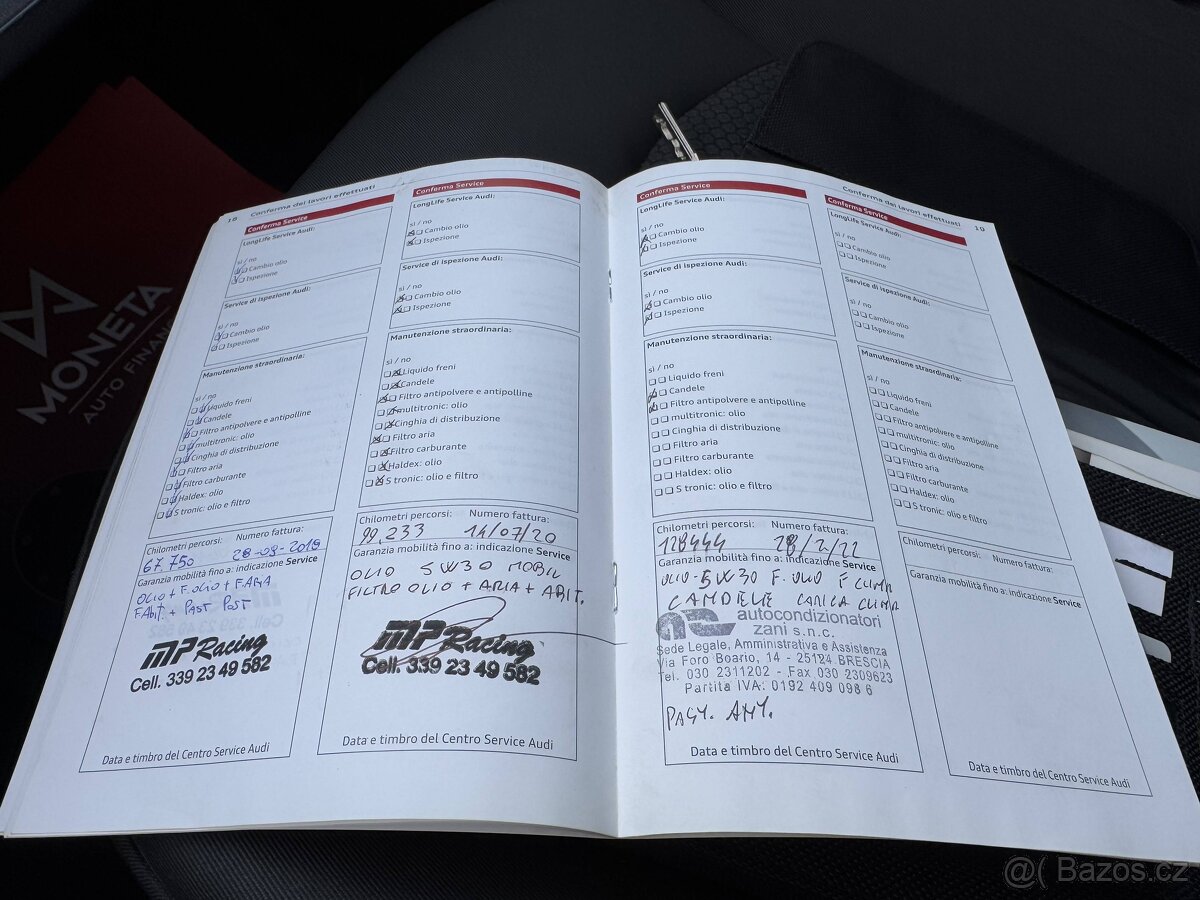 MONETA
AUTO FINAN
18 Conferma dei lavori effettuati
Conferma Service
LongLife Service Audi:
sì / no
Cambio olio
Ispezione
Service di ispezione Audi:
sì / no
Cambio olio
Ispezione
Manutenzione straordinaria:
sì / no
Liquido freni
Candele
Filtro antipolvere e antipolline
multitronic: olio
Cinghia di distribuzione
Filtro aria
Filtro carburante
Haldex: olio
S tronic: olio e filtro
Chilometri percorsi: Numero fattura:
67.750 28-09-2019
Garanzia mobilità fino a: indicazione Service
OLIO + F.OLIO + F.ARIA
F.ABIT. + PAST POST
MP Racing
Cell. 339 23 49 582
Data e timbro del Centro Service Audi
Conferma Service
LongLife Service Audi:
sì / no
Cambio olio
Ispezione
Service di ispezione Audi:
sì / no
Cambio olio
Ispezione
Manutenzione straordinaria:
sì / no
Liquido freni
Candele
Filtro antipolvere e antipolline
multitronic: olio
Cinghia di distribuzione
Filtro aria
Filtro carburante
Haldex: olio
S tronic: olio e filtro
Chilometri percorsi: Numero fattura:
99.233 14/07/20
Garanzia mobilità fino a: indicazione Service
OLIO 5W30 MOBIL
FILTRO OLIO + ARIA + ABIT.
MP Racing
Cell. 339 23 49 582
Data e timbro del Centro Service Audi
Conferma dei lavori effettuati 19
Conferma Service
LongLife Service Audi:
sì / no
Cambio olio
Ispezione
Service di ispezione Audi:
sì / no
Cambio olio
Ispezione
Manutenzione straordinaria:
sì / no
Liquido freni
Candele
Filtro antipolvere e antipolline
multitronic: olio
Cinghia di distribuzione
Filtro aria
Filtro carburante
Haldex: olio
S tronic: olio e filtro
Chilometri percorsi: Numero fattura:
128444 28/2/22
Garanzia mobilità fino a: indicazione Service
OLIO-5W30 F.OLIO F CLIMA
CANDELE CARICA CLIMA
autocondizionatori
zani s.n.c.
Sede Legale, Amministrativa e Assistenza
Via Foro Boario, 14 - 25124 BRESCIA
Tel. 030 2311202 - Fax 030 2309623
Partita IVA: 0192 409 098 6
Data e timbro del Centro Service Audi
Conferma Service
LongLife Service Audi:
sì / no
Cambio olio
Ispezione
Service di ispezione Audi:
sì / no
Cambio olio
Ispezione
Manutenzione straordinaria:
sì / no
Liquido freni
Candele
Filtro antipolvere e antipolline
multitronic: olio
Cinghia di distribuzione
Filtro aria
Filtro carburante
Haldex: olio
S tronic: olio e filtro
Chilometri percorsi: Numero fattura:
Garanzia mobilità fino a: indicazione Service
Data e timbro del Centro Service Audi
Bazos.cz